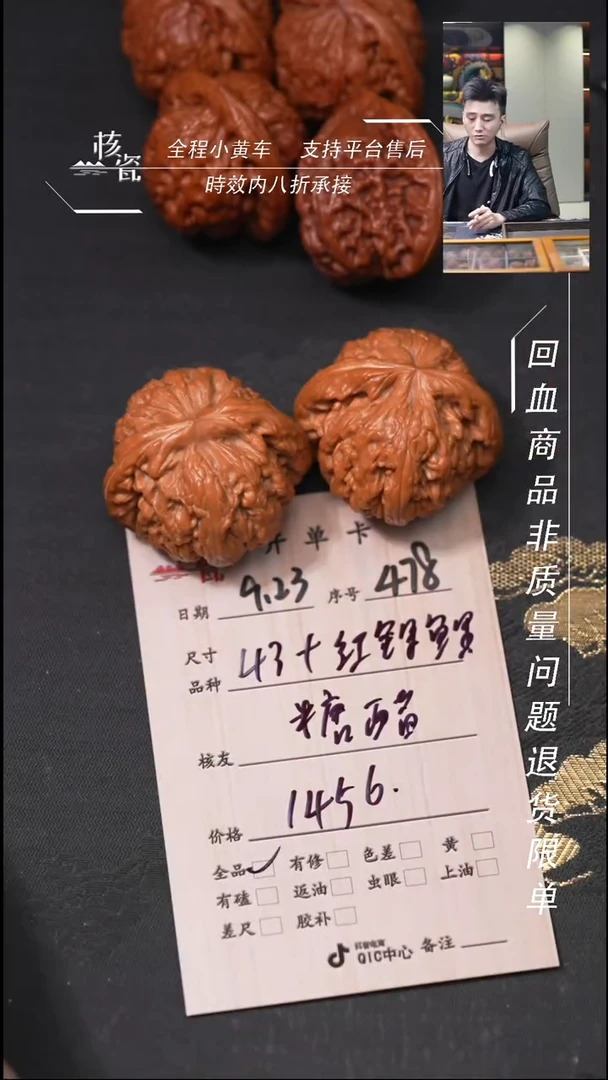 核瓷
全程小黄车 支持平台售后
時效内八折承接
回血商品非质量问题退货限单
开单卡
日期 9.23 序号 478
尺寸
品种 43+红銀
核友 糖醋
价格 1456.
全品 有修 色差 黄
有磕 返油 虫眼 上油
差尺 胶补
抖音电商
QIC中心 备注